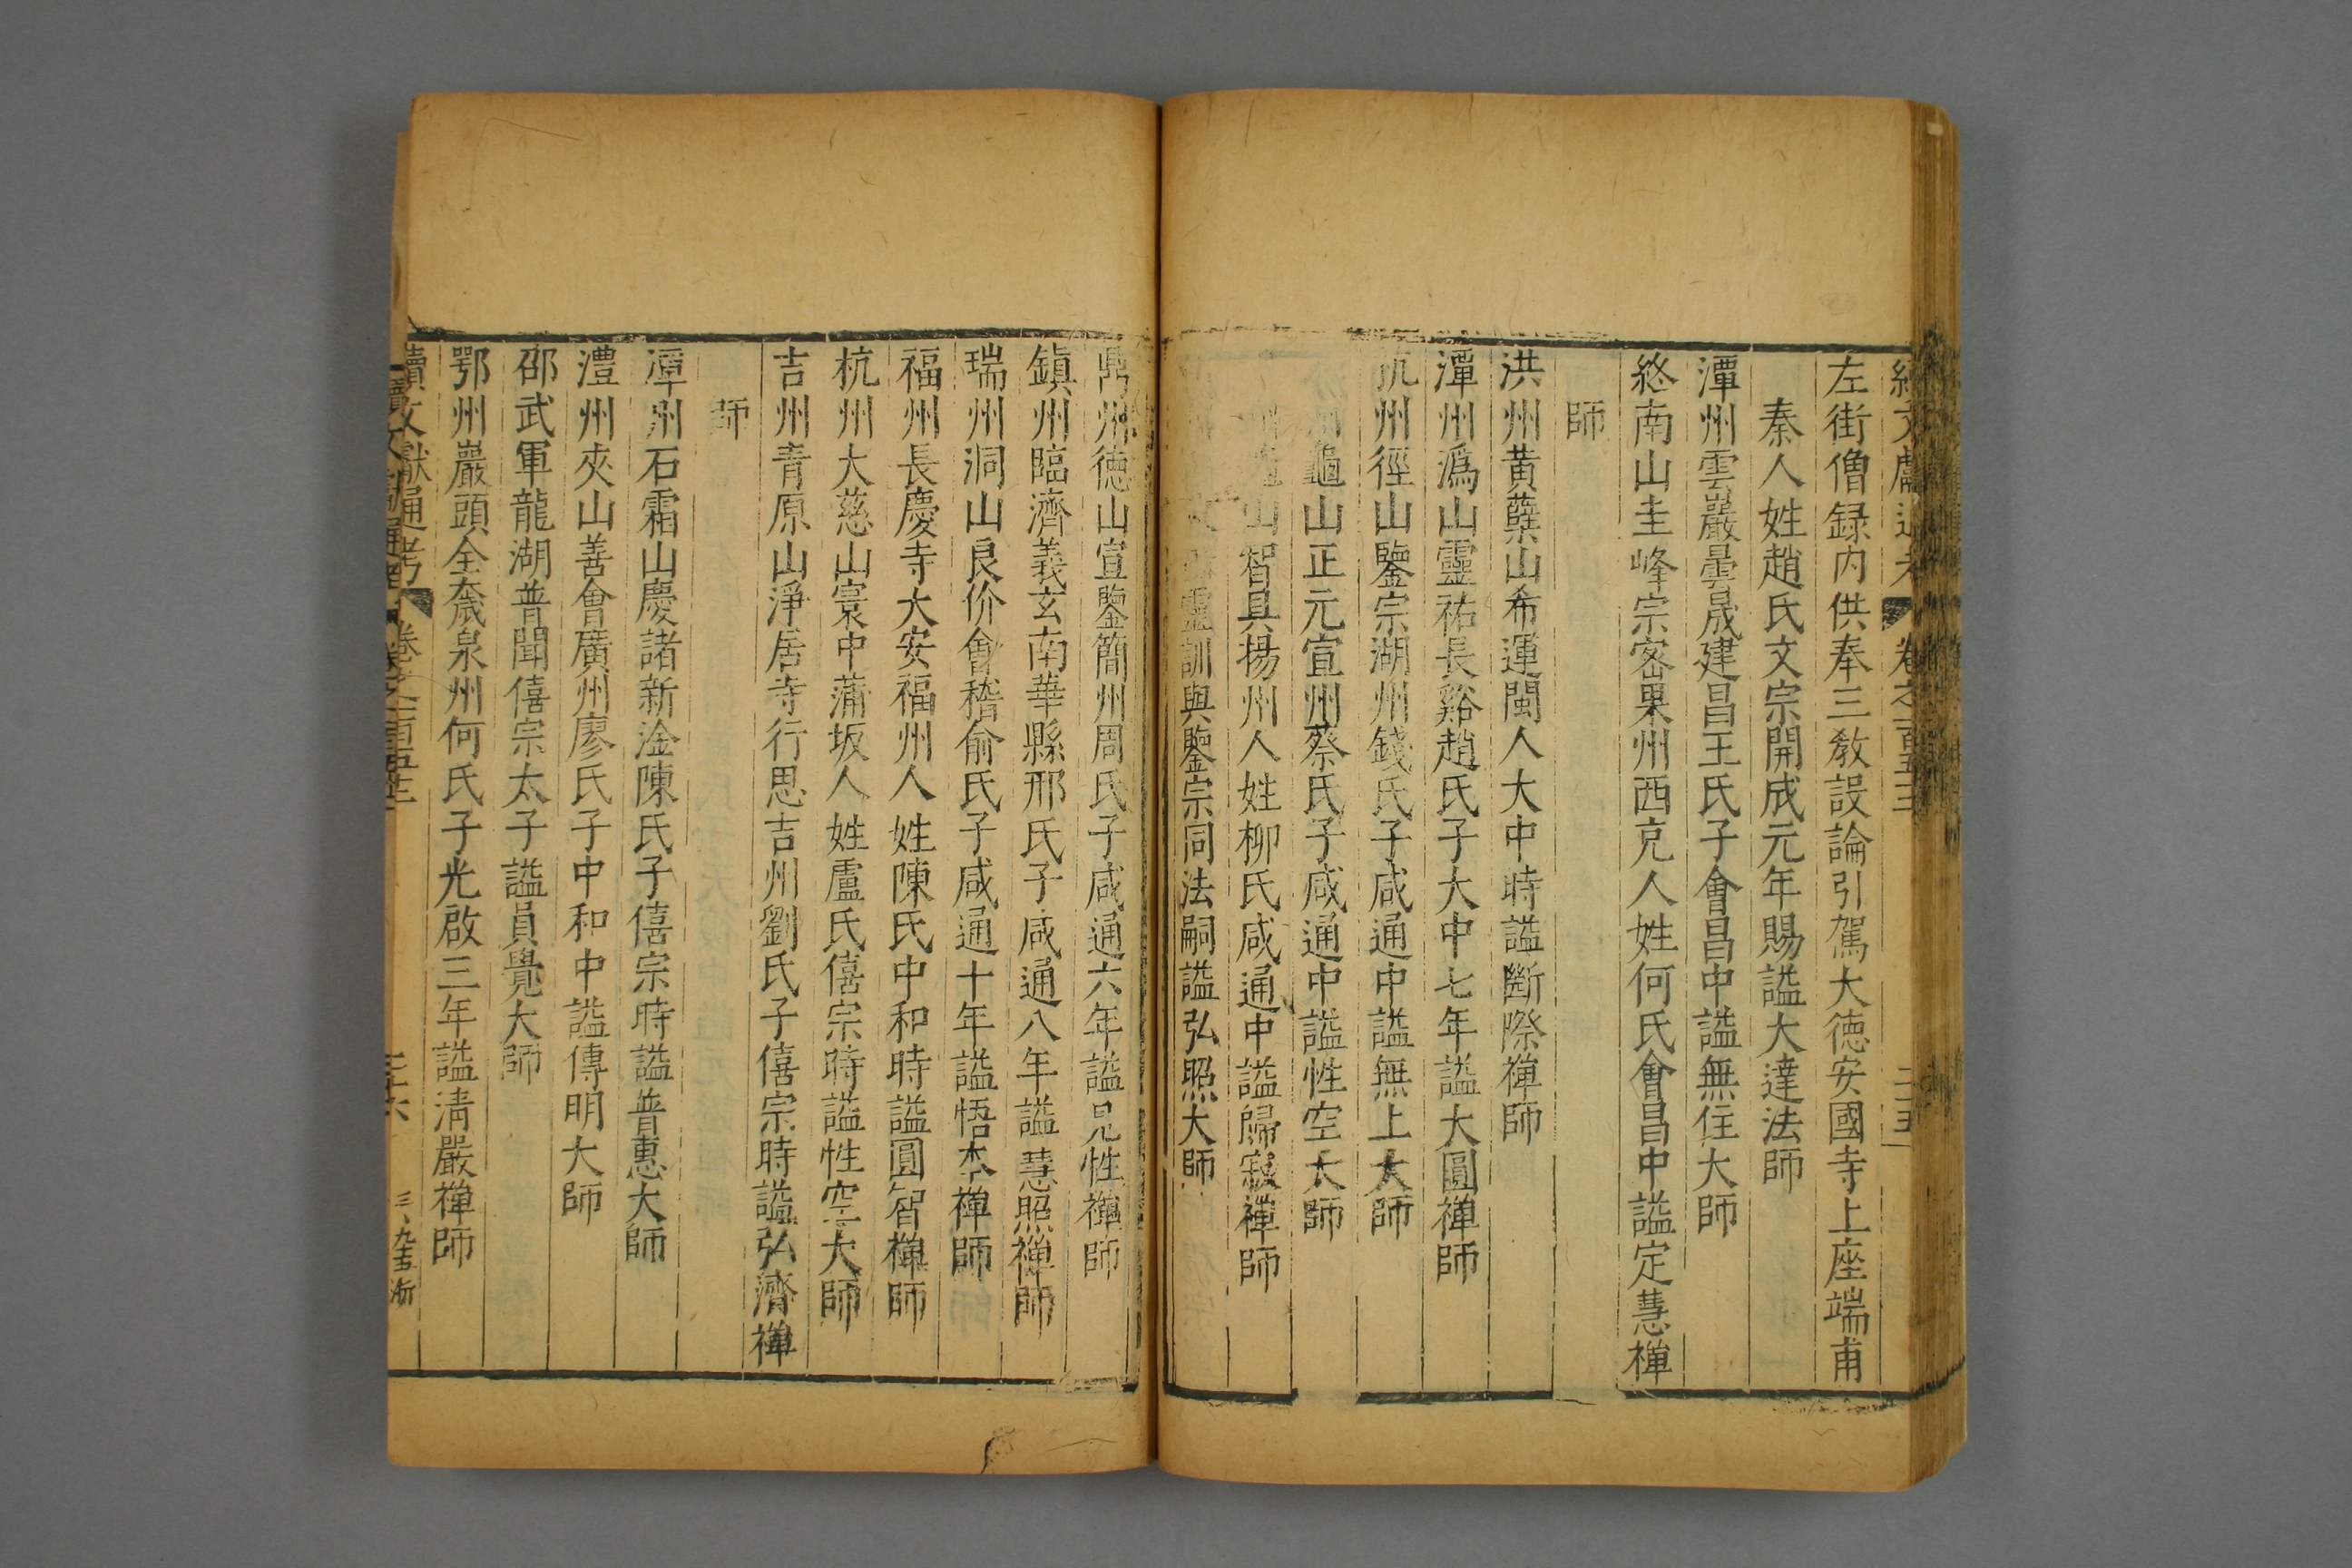 續文獻通考 卷之一百五十三 二十五
左街僧録内供奉三敎談論引駕大徳安國寺上座端甫
秦人姓趙氏文宗開成元年賜謚大達法師
潭州雲巖曇晟建昌王氏子會昌中謚無住大師
終南山圭峰宗宻果州西充人姓何氏會昌中謚定慧禅
師
洪州黄蘖山希運閩人大中時謚斷際禅師
潭州溈山靈祐長谿趙氏子大中七年謚大圓禅師
杭州徑山鑒宗湖州錢氏子咸通中謚無上大師
州龜山正元宣州蔡氏子咸通中謚性空大師
山智具揚州人姓柳氏咸通中謚歸寂禅師
靈訓與鑒宗同法嗣謚弘照大師
鼎州徳山宣鑒簡州周氏子咸通六年謚見性禅師
鎮州臨濟義玄南華縣邢氏子咸通八年謚慧照禅師
瑞州洞山良价會稽俞氏子咸通十年謚悟本禅師
福州長慶寺大安福州人姓陳氏中和時謚圓智禅師
杭州大慈山寰中蒲坂人姓盧氏僖宗時謚性空大師
吉州青原山淨居寺行思吉州劉氏子僖宗時謚弘濟禅
師
潭州石霜山慶諸新淦陳氏子僖宗時謚普惠大師
澧州夾山善會廣州廖氏子中和中謚傳明大師
邵武軍龍湖普聞僖宗太子謚員覺大師
鄂州巖頭全奯泉州何氏子光啟三年謚清嚴禅師
續文獻通考 卷之一百五十三 二十六